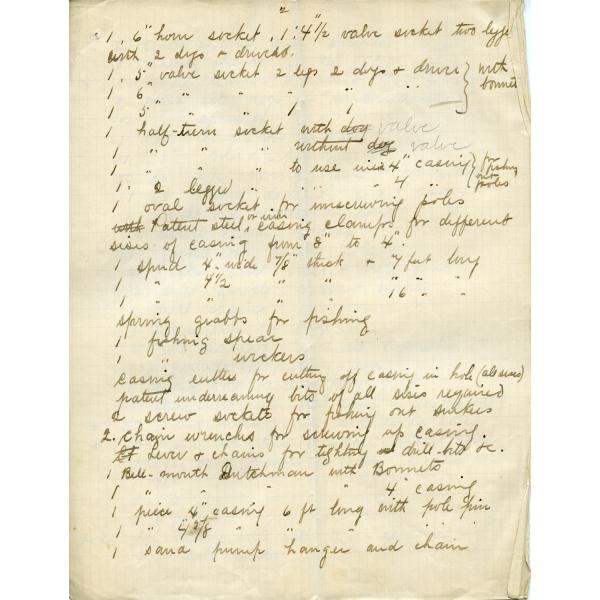 2
1, 6" horn socket, 1: 4 1/2 valve socket two legge
with 2 dogs & drivers.
1, 5" valve socket 2 legs 2 dogs & drive } with
1 6" " " " " " bonnets
1 5" " " 1 1 "
1 half-turn socket with dog valve
1 " " " without dog valve
1 " " " to use in 4" casing } for fishing
1. 2 legged " " " 4 " out poles
1 oval socket for unscrewing poles
with Patent steel or iron casing clamps for different
sises of casing from 8" to 4".
1 spud 4" wide 7/8" thick & 7 feet long
1 " 4 1/2 " " " " "
1 " " " " 16 " "
spring grabbs for fishing
1 fishing spear
1 " wickers
casing cutter for cutting off casing in hole (all sises)
patent underreaming bits of all sises required
2 screw sockets for fishing out sinkers
2. chain wrenches for screwing up casing.
Lever & chains for tighting drill-bits &c.
1 Bell-mouth Dutchman with Bonnets
1 " " " " 4" casing
1 piece 4" casing 6 ft long with pole pin
1 " 4 5/8 " " " " "
1 sand pump hanger and chain